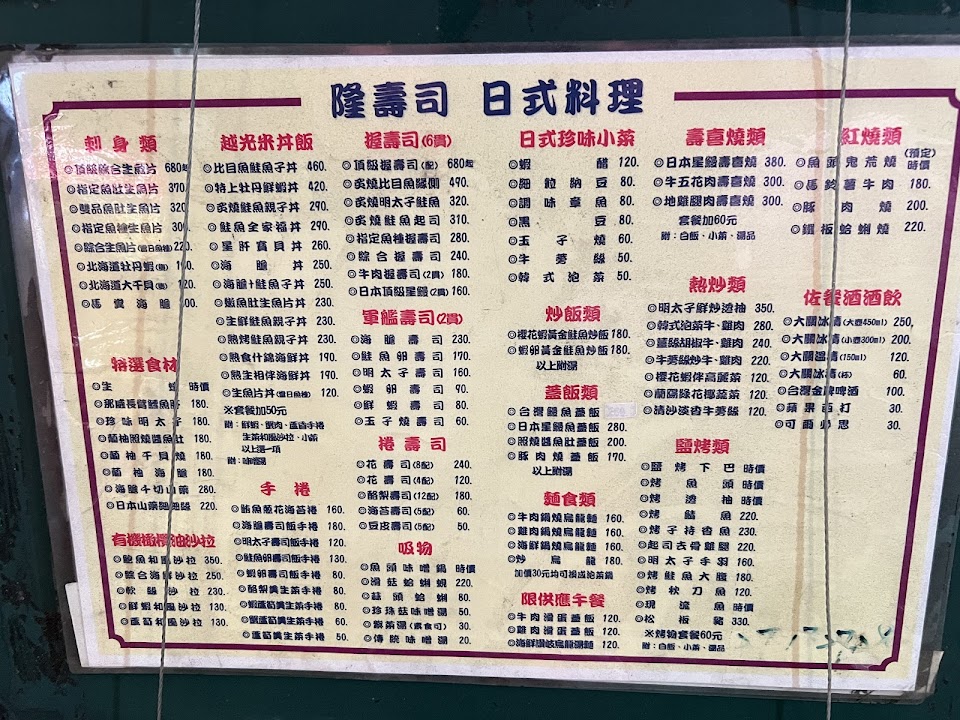 隆壽司 日式料理
刺身類
◎頂級綜合生魚片 680起
◎指定魚肚生魚片 370
◎雙品魚肚生魚片 320
◎指定魚種生魚片 300
◎綜合生魚片(當日魚種)220
◎北海道牡丹蝦
◎北海道大干貝
◎馬糞海膽
特選食材
◎生 時價
◎那威長臂鱈魚肝 180.
◎珍味明太子 180.
◎葡柚照燒醬魚肚 180.
◎葡柚干貝燒 180.
◎葡柚海膽 180.
◎海膽千切山藥 280.
◎日本山藥細麵 220.
有機橄欖油沙拉
◎鮑魚和風沙拉 350.
◎綜合海鮮沙拉 250.
◎軟殼沙拉 230.
◎鮮蝦和風沙拉 130.
◎蘆筍和風沙拉 130.
越光米丼飯
◎比目魚鮭魚子丼 460.
◎特上牡丹鮮蝦丼 420.
◎炙燒鮭魚親子丼 290.
◎鮭魚全家福丼 290.
◎星肝寶貝丼 260.
◎海膽丼 250.
◎海膽+鮭魚子丼 250.
◎嫩魚肚生魚片丼 230.
◎生鮮鮭魚親子丼 230.
◎熟烤鮭魚親子丼 230.
◎熟食什錦海鮮丼 190.
◎熟生相伴海鮮丼 190.
◎生魚片丼(當日魚種) 120.
※套餐加50元
附：鮮蝦、蟹肉、蘆筍手捲
生菜和風沙拉、小菜
以上選一項
附：味噌湯
手捲
◎鮪魚蔥花海苔捲 160.
◎海膽壽司飯手捲 180.
◎明太子壽司飯手捲 120.
◎鮭魚卵壽司飯手捲 130.
◎蝦卵壽司飯手捲 80.
◎酪梨生菜手捲 80.
◎蝦蘆筍生菜手捲 60.
◎蟹蘆筍生菜手捲 60.
◎蘆筍生菜手捲 50.
握壽司(6貫)
◎頂級握壽司(配) 680起
◎炙燒比目魚緣側 490.
◎炙燒明太子鮭魚 320.
◎炙燒鮭魚起司 310.
◎指定魚種握壽司 280.
◎綜合握壽司 240.
◎牛肉握壽司(2貫)180.
◎日本頂級星鰻(2貫)160.
軍艦壽司(2貫)
◎海膽壽司 230.
◎鮭魚卵壽司 170.
◎明太子壽司 160.
◎蝦卵壽司 90.
◎鮮蝦壽司 80.
◎玉子壽司 60.
捲壽司
◎花壽司(8配) 240.
◎花壽司(4配) 120.
◎酪梨壽司(12配) 180.
◎海苔壽司(5配) 60.
◎豆皮壽司(5配) 50.
吸物
◎魚頭味噌鍋 時價
◎滑菇蛤蜊蜆 220.
◎蒜頭蛤蜊 80.
◎珍珠菇味噌湯 50.
◎紫菜湯(素食可) 30.
◎傳統味噌湯 20.
日式珍味小菜
◎蝦醋 120.
◎細粒納豆 80.
◎調味章魚 80.
◎黑豆 80.
◎玉子燒 60.
◎牛蒡絲 50.
◎韓式泡菜 50.
炒飯類
◎櫻花蝦黃金鮭魚炒飯 180.
◎蝦卵黃金鮭魚炒飯 180.
以上附湯
蓋飯類
◎台灣鰻魚蓋飯
◎日本星鰻魚蓋飯 280.
◎照燒醬魚肚蓋飯 200.
◎豚肉燒蓋飯 170.
以上附湯
麵食類
◎牛肉鍋燒烏龍麵 160.
◎雞肉鍋燒烏龍麵 160.
◎海鮮鍋燒烏龍麵 160.
◎炒烏龍 160.
加價30元均可換成泡菜鍋
限供應午餐
◎牛肉滑蛋蓋飯 120.
◎雞肉滑蛋蓋飯 120.
◎海鮮讚岐烏龍湯麵 120.
壽喜燒類
◎日本星鰻壽喜燒 380.
◎牛五花肉壽喜燒 300.
◎地雞腿肉壽喜燒 300.
套餐加60元
附：白飯、小菜、湯品
熱炒類
◎明太子鮮炒透抽 350.
◎韓式泡菜牛、雞肉 280.
◎薑絲胡椒牛、雞肉 240.
◎牛蒡絲炒牛、雞肉 220.
◎櫻花蝦伴高麗菜 120.
◎蘭陽綠花椰蔬菜 120.
◎清沙淡香牛蒡絲 120.
鹽烤類
◎鹽烤下巴 時價
◎烤魚頭 時價
◎烤透抽 時價
◎烤鯖魚 220.
◎烤子持香魚 230.
◎起司去骨雞腿 220.
◎明太子手羽 160.
◎烤鮭魚大腹 180.
◎烤秋刀魚 120.
◎現流魚 時價
◎松板豬 330.
※烤物套餐60元
附：白飯、小菜、湯品
紅燒類
◎魚頭鬼荒燒 (預定)時價
◎馬鈴薯牛肉 180.
◎豚肉燒 200.
◎鐵板蛤蜊燒 220.
佐餐酒酒飲
◎大關冰清(大壺450ml) 250.
◎大關冰清(小壺300ml) 200.
◎大關溫清(150ml) 120.
◎大關冰清(杯) 60.
◎台灣金牌啤酒 100.
◎蘋果西打 30.
◎可爾必思 30.